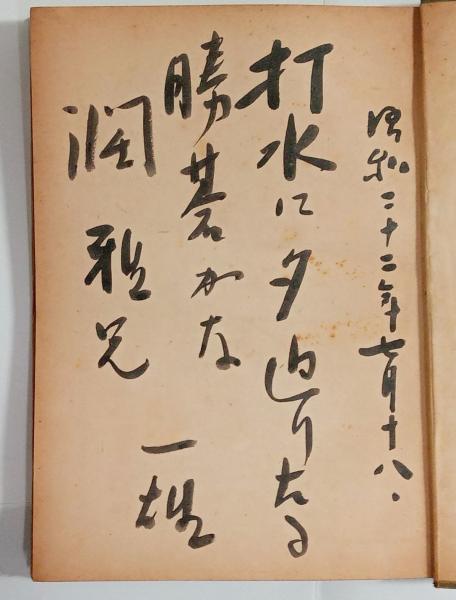 昭和二十二年七月十八、
打水に夕迫りたる
勝碁かな
一雄
潤雅兄